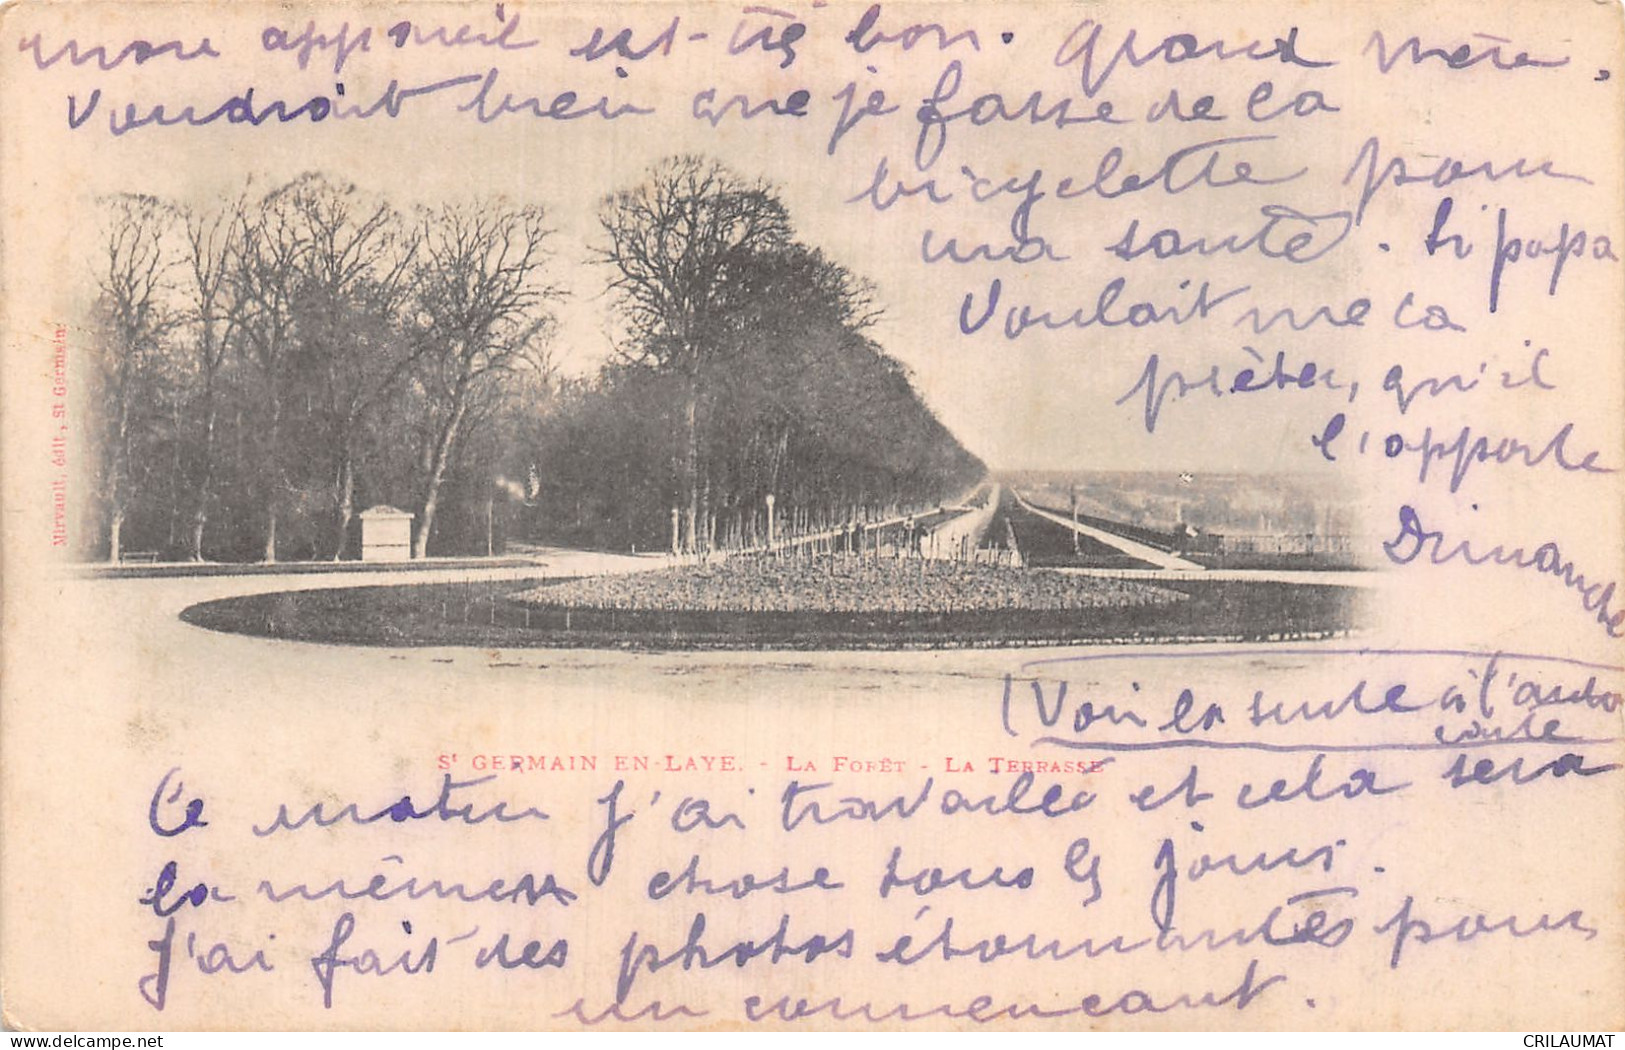 mon appareil est très bon. Grand mère.
Voudrait bien que je fasse de la
bicyclette pour
ma santé. Si papa
Voulait me la
prêter, qu'il
l'apporte
Dimanche
(Voir la suite à l'autre
carte
St GERMAIN EN-LAYE. - LA FORÊT - LA TERRASSE
Ce matin j'ai travaillé et cela sera
la même chose tous les jours.
J'ai fait des photos étonnantes pour
un commencant.
Mirvault, édit., St Germain
CRILAUMAT